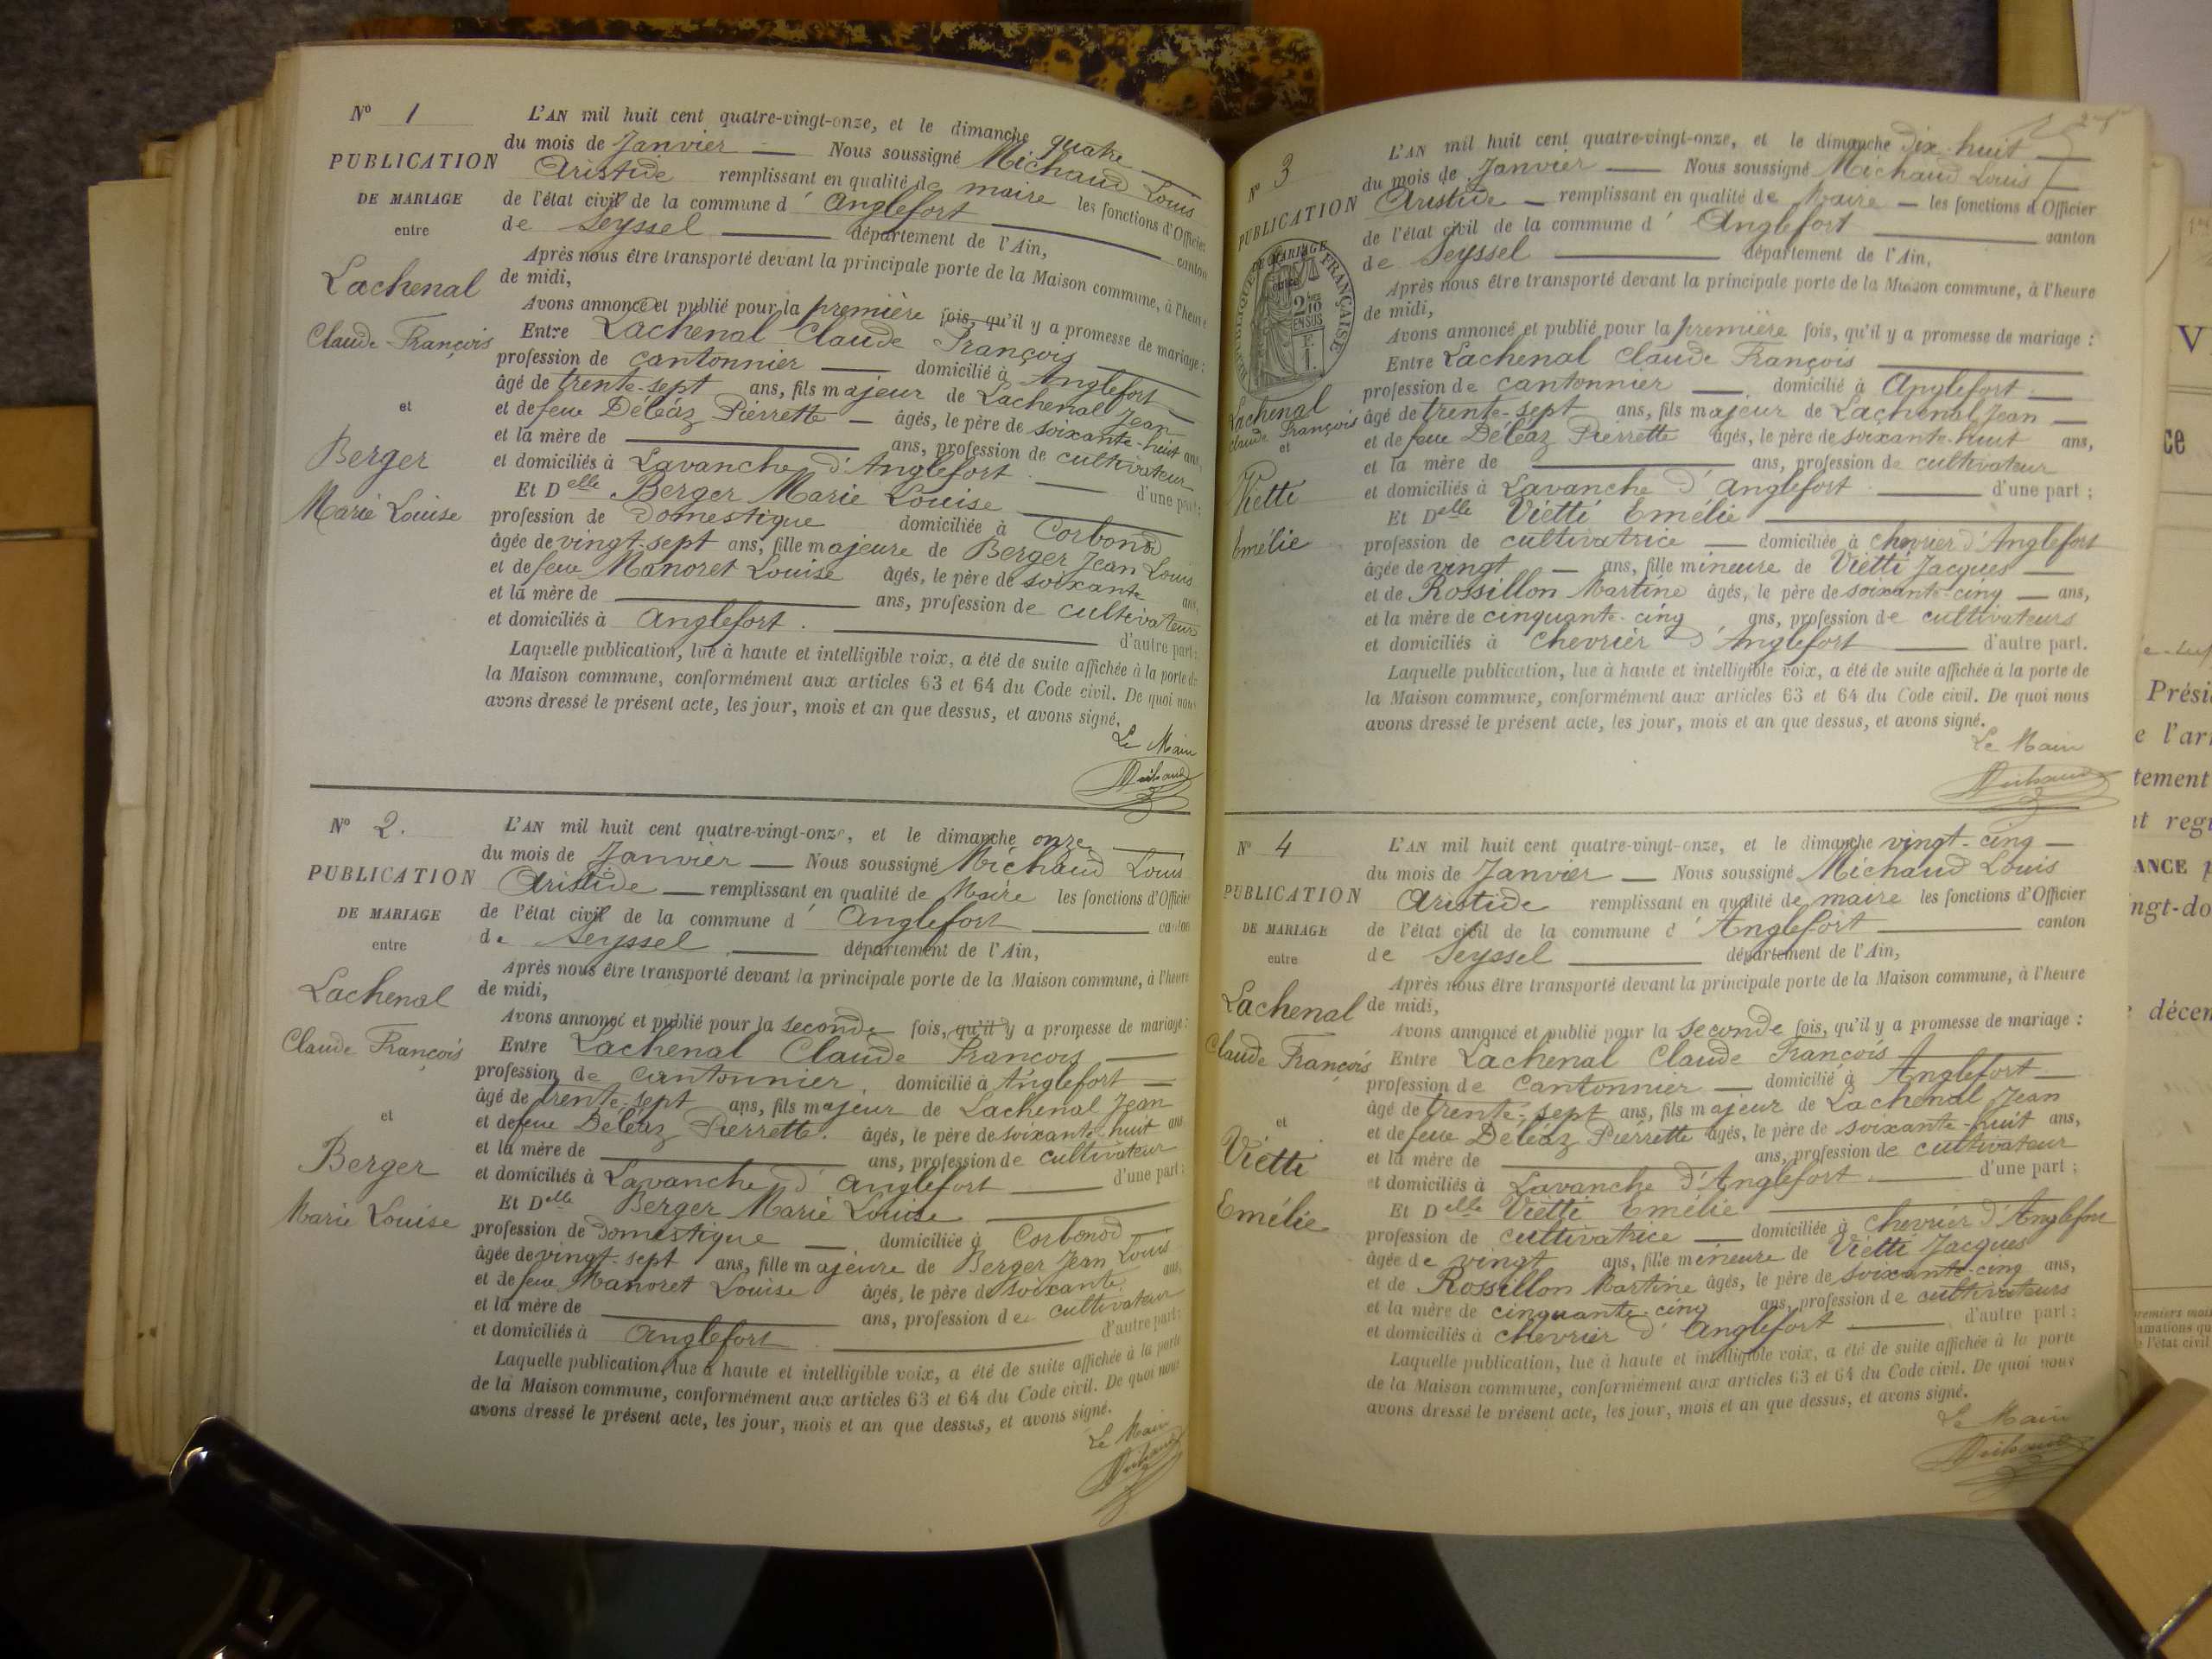 N° 1
PUBLICATION
DE MARIAGE
entre
Lachenal
Claude François
et
Berger
Marie Louise
L'AN mil huit cent quatre-vingt-onze, et le dimanche quatre
du mois de Janvier — Nous soussigné Michaud Louis
Aristide remplissant en qualité de maire les fonctions d'Officier
de l'état civil de la commune d' Anglefort canton
de Seyssel département de l'Ain,
Après nous être transporté devant la principale porte de la Maison commune, à l'heure
de midi,
Avons annoncé et publié pour la première fois, qu'il y a promesse de mariage :
Entre Lachenal Claude François
profession de cantonnier — domicilié à Anglefort
âgé de trente-sept ans, fils majeur de Lachenal Jean
et de feue Déléaz Pierrette — âgés, le père de soixante-huit ans,
et la mère de — ans, profession de cultivateur
et domiciliés à Lavanche d'Anglefort — d'une part ;
Et Delle Berger Marie Louise
profession de Domestique domiciliée à Corbonod
âgée de vingt-sept ans, fille majeure de Berger Jean Louis
et de feue Manoret Louise âgés, le père de soixante ans,
et la mère de — ans, profession de cultivateurs
et domiciliés à Anglefort. — d'autre part.
Laquelle publication, lue à haute et intelligible voix, a été de suite affichée à la porte de
la Maison commune, conformément aux articles 63 et 64 du Code civil. De quoi nous
avons dressé le présent acte, les jour, mois et an que dessus, et avons signé.
Le Maire
Michaud
N° 2.
PUBLICATION
DE MARIAGE
entre
Lachenal
Claude François
et
Berger
Marie Louise
L'AN mil huit cent quatre-vingt-onze, et le dimanche onze
du mois de Janvier — Nous soussigné Michaud Louis
Aristide — remplissant en qualité de Maire les fonctions d'Officier
de l'état civil de la commune d' Anglefort canton
de Seyssel département de l'Ain,
Après nous être transporté devant la principale porte de la Maison commune, à l'heure
de midi,
Avons annoncé et publié pour la seconde fois, qu'il y a promesse de mariage :
Entre Lachenal Claude François —
profession de cantonnier. domicilié à Anglefort —
âgé de trente-sept ans, fils majeur de Lachenal Jean
et de feue Déléaz Pierrette. âgés, le père de soixante-huit ans
et la mère de — ans, profession de cultivateur
et domiciliés à Lavanche d'Anglefort — d'une part ;
Et Delle Berger Marie Louise
profession de Domestique — domiciliée à Corbonod —
âgée de vingt-sept ans, fille majeure de Berger Jean Louis
et de feue Manoret Louise âgés, le père de soixante ans,
et la mère de — ans, profession de cultivateur
et domiciliés à Anglefort. — d'autre part.
Laquelle publication, lue à haute et intelligible voix, a été de suite affichée à la porte
de la Maison commune, conformément aux articles 63 et 64 du Code civil. De quoi nous
avons dressé le présent acte, les jour, mois et an que dessus, et avons signé.
Le Maire
Michaud
N° 3
PUBLICATION
DE MARIAGE
RÉPUBLIQUE FRANÇAISE
2/10 EN SUS
Lachenal
Claude François
et
Vietti
Emélie
L'AN mil huit cent quatre-vingt-onze, et le dimanche dix-huit
du mois de Janvier — Nous soussigné Michaud Louis
Aristide — remplissant en qualité de Maire — les fonctions d'Officier
de l'état civil de la commune d' Anglefort canton
de Seyssel département de l'Ain,
Après nous être transporté devant la principale porte de la Maison commune, à l'heure
de midi,
Avons annoncé et publié pour la première fois, qu'il y a promesse de mariage :
Entre Lachenal Claude François
profession de cantonnier — domicilié à Anglefort.
âgé de trente-sept ans, fils majeur de Lachenal Jean —
et de feue Déléaz Pierrette âgés, le père de soixante-huit ans,
et la mère de — ans, profession de cultivateur
et domiciliés à Lavanche d'Anglefort. — d'une part ;
Et Delle Vietti Emélie
profession de cultivatrice — domiciliée à Chevrier d'Anglefort
âgée de vingt — ans, fille mineure de Vietti Jacques —
et de Rossillon Martine âgés, le père de soixante-cinq — ans,
et la mère de cinquante-cinq ans, profession de cultivateurs
et domiciliés à Chevrier d'Anglefort — d'autre part.
Laquelle publication, lue à haute et intelligible voix, a été de suite affichée à la porte de
la Maison commune, conformément aux articles 63 et 64 du Code civil. De quoi nous
avons dressé le présent acte, les jour, mois et an que dessus, et avons signé.
Le Maire
Michaud
N° 4
PUBLICATION
DE MARIAGE
entre
Lachenal
Claude François
et
Vietti
Emélie
L'AN mil huit cent quatre-vingt-onze, et le dimanche vingt-cinq —
du mois de Janvier — Nous soussigné Michaud Louis
Aristide remplissant en qualité de maire les fonctions d'Officier
de l'état civil de la commune d' Anglefort canton
de Seyssel département de l'Ain,
Après nous être transporté devant la principale porte de la Maison commune, à l'heure
de midi,
Avons annoncé et publié pour la seconde fois, qu'il y a promesse de mariage :
Entre Lachenal Claude François
profession de cantonnier — domicilié à Anglefort —
âgé de trente-sept ans, fils majeur de Lachenal Jean
et de feue Déléaz Pierrette âgés, le père de soixante-huit ans,
et la mère de — ans, profession de cultivateur
et domiciliés à Lavanche d'Anglefort. — d'une part ;
Et Delle Vietti Emélie
profession de cultivatrice — domiciliée à Chevrier d'Anglefort
âgée de vingt ans, fille mineure de Vietti Jacques
et de Rossillon Martine âgés, le père de soixante-cinq ans,
et la mère de cinquante-cinq ans, profession de cultivateurs
et domiciliés à Chevrier d'Anglefort — d'autre part.
Laquelle publication, lue à haute et intelligible voix, a été de suite affichée à la porte
de la Maison commune, conformément aux articles 63 et 64 du Code civil. De quoi nous
avons dressé le présent acte, les jour, mois et an que dessus, et avons signé.
Le Maire
Michaud